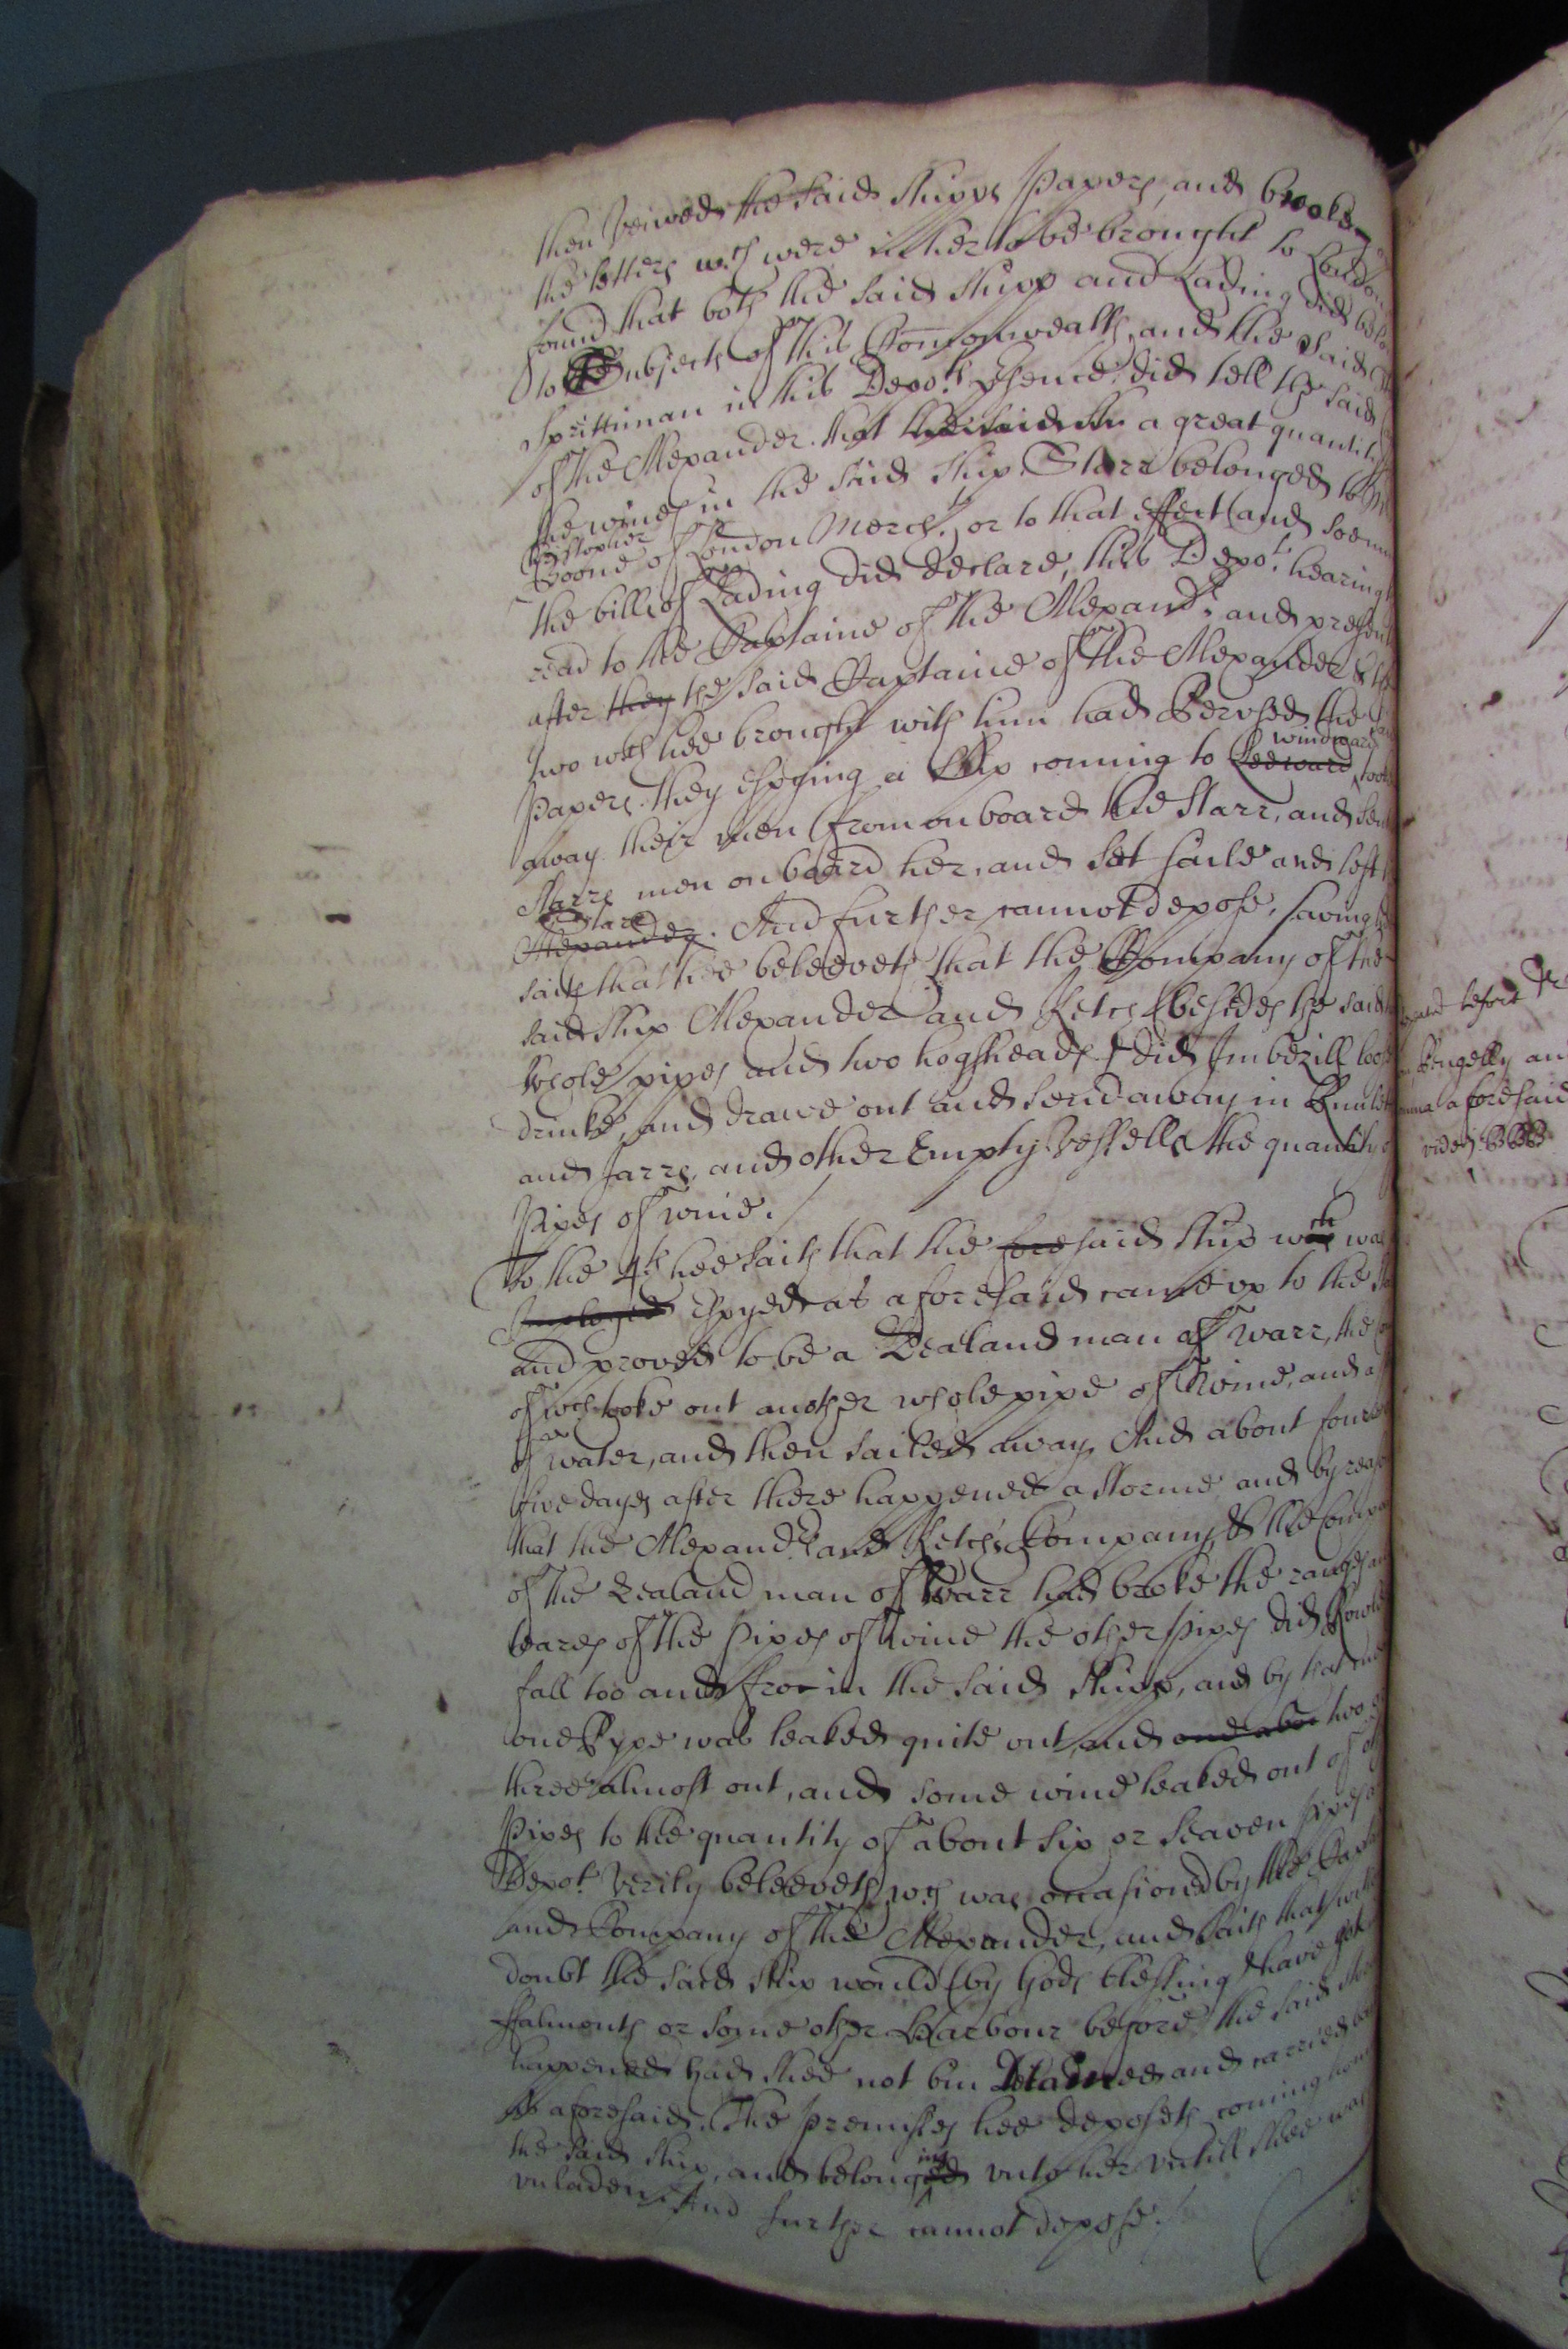 then veiwed the said shipps Papers, and broake
the letters wch were in her to be brought to London
found that both the said shipp and Lading did
to Subjects of this Comonwealth, and the said
Sprittiman in this Depots psence did tell the said
of the Alexander that a great quantity
the wines in the said ship Starr belonged to
Christopher
Boone of London Mercht. or to that effect (and soe
the bills of Lading did declare, this Depot hearing
read to the Captaine of the Alexandr. and present
after they the said Captaine of the Alexander &
two wch hee brought with him had Perused the
windward
Papers they espying a ship coming to Leeward
away their men from on board the Starr, and sent
Starrs men on board her, and set saile and left
Starr
Alexander. And further cannot depose, saving
saith that hee beleeveth that the Company of the
said ship Alexander and Ketch (besides the said
whole pipes and two hogsheads) did Imbezill
drinke, and drawe out and send away in
and Jarrs, and other Empty Vessells the quantity
Pipes of wine.
To the 4th hee saith that the fore said ship wch was
espyed as aforesaid came vp to the
and proved to be a Zealand man of warr, the
of wch tooke out another whole pipe of Wine, and
of water, and then sailed away And about foure
five dayes after there happened a storme and by reason
that the Alexandr. and Ketch's Company, & the Compa
of the Zealand man of Warr had broke the ranges
beares of the Pipes of Wine the other Pipes did
fall too and fro in the said shipp, and by that
one Pype was leaked quite out, and one about two
three almost out, and some wine leaked out of
Pipes to the quantity of about six or seaven pipes
Depot. Verily beleeveth, wch was occasioned by the
and Company of the Alexander, and saith that
doubt the said ship would (by Gods blessing) have got
ffalmouth or some other Harbour before the said
happened had shee not bin Detained and carried
as aforesaid. The premisses hee deposeth coming
ing
the said ship, and belonged vnto her vntill shee was
vnladen. And further cannot depose.
before
Pengelly
aforesaid